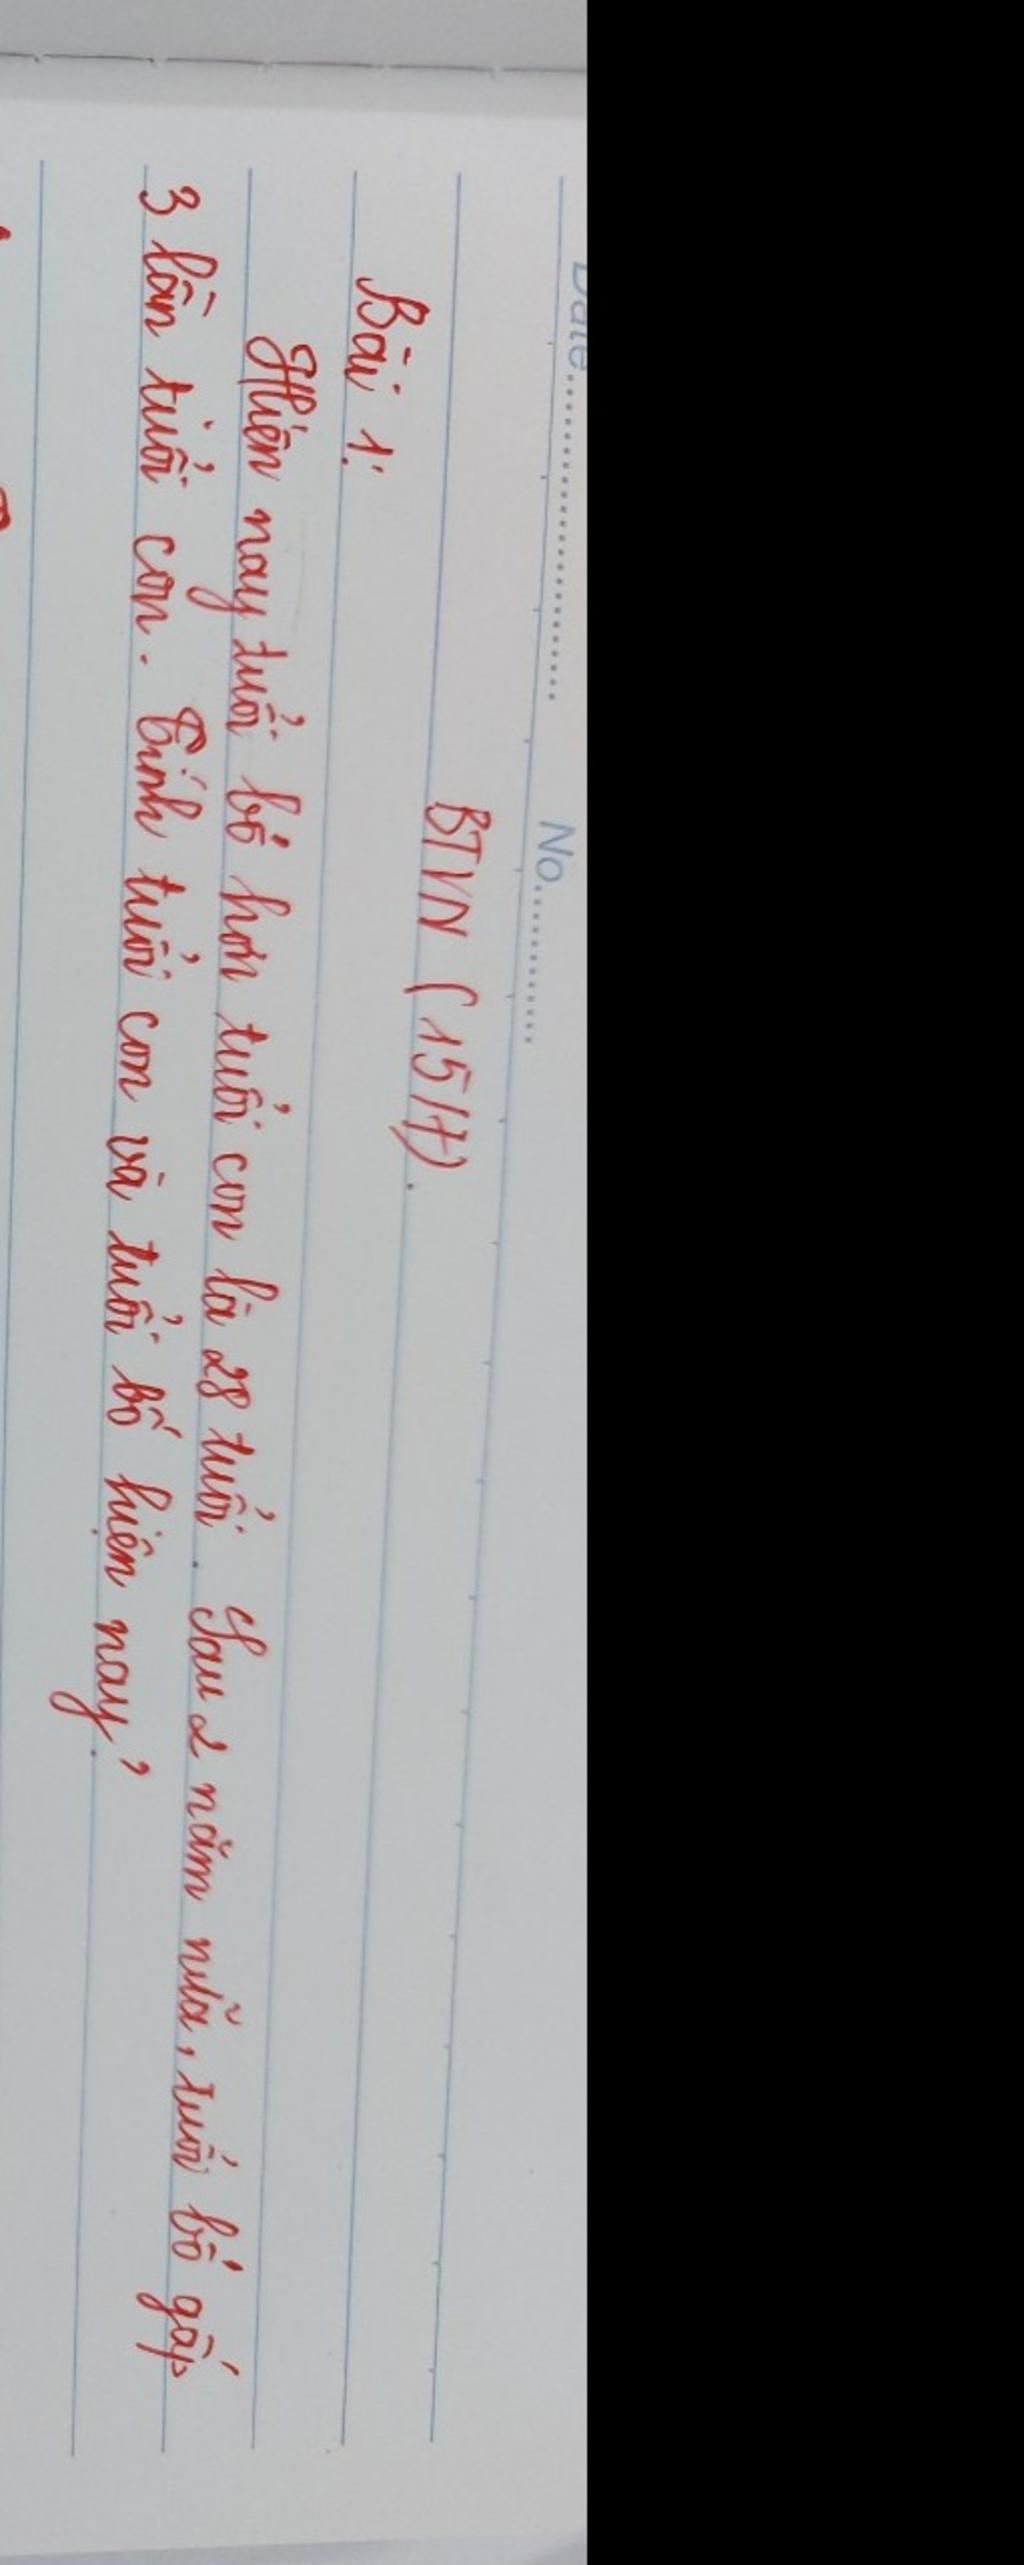 Date.............................. No................
BTVN (15/4).
Bài 1:
Hiện nay tuổi bố hơn tuổi con là 28 tuổi. Sau 2 năm nữa, tuổi bố gấp
3 lần tuổi con. Tính tuổi con và tuổi bố hiện nay?